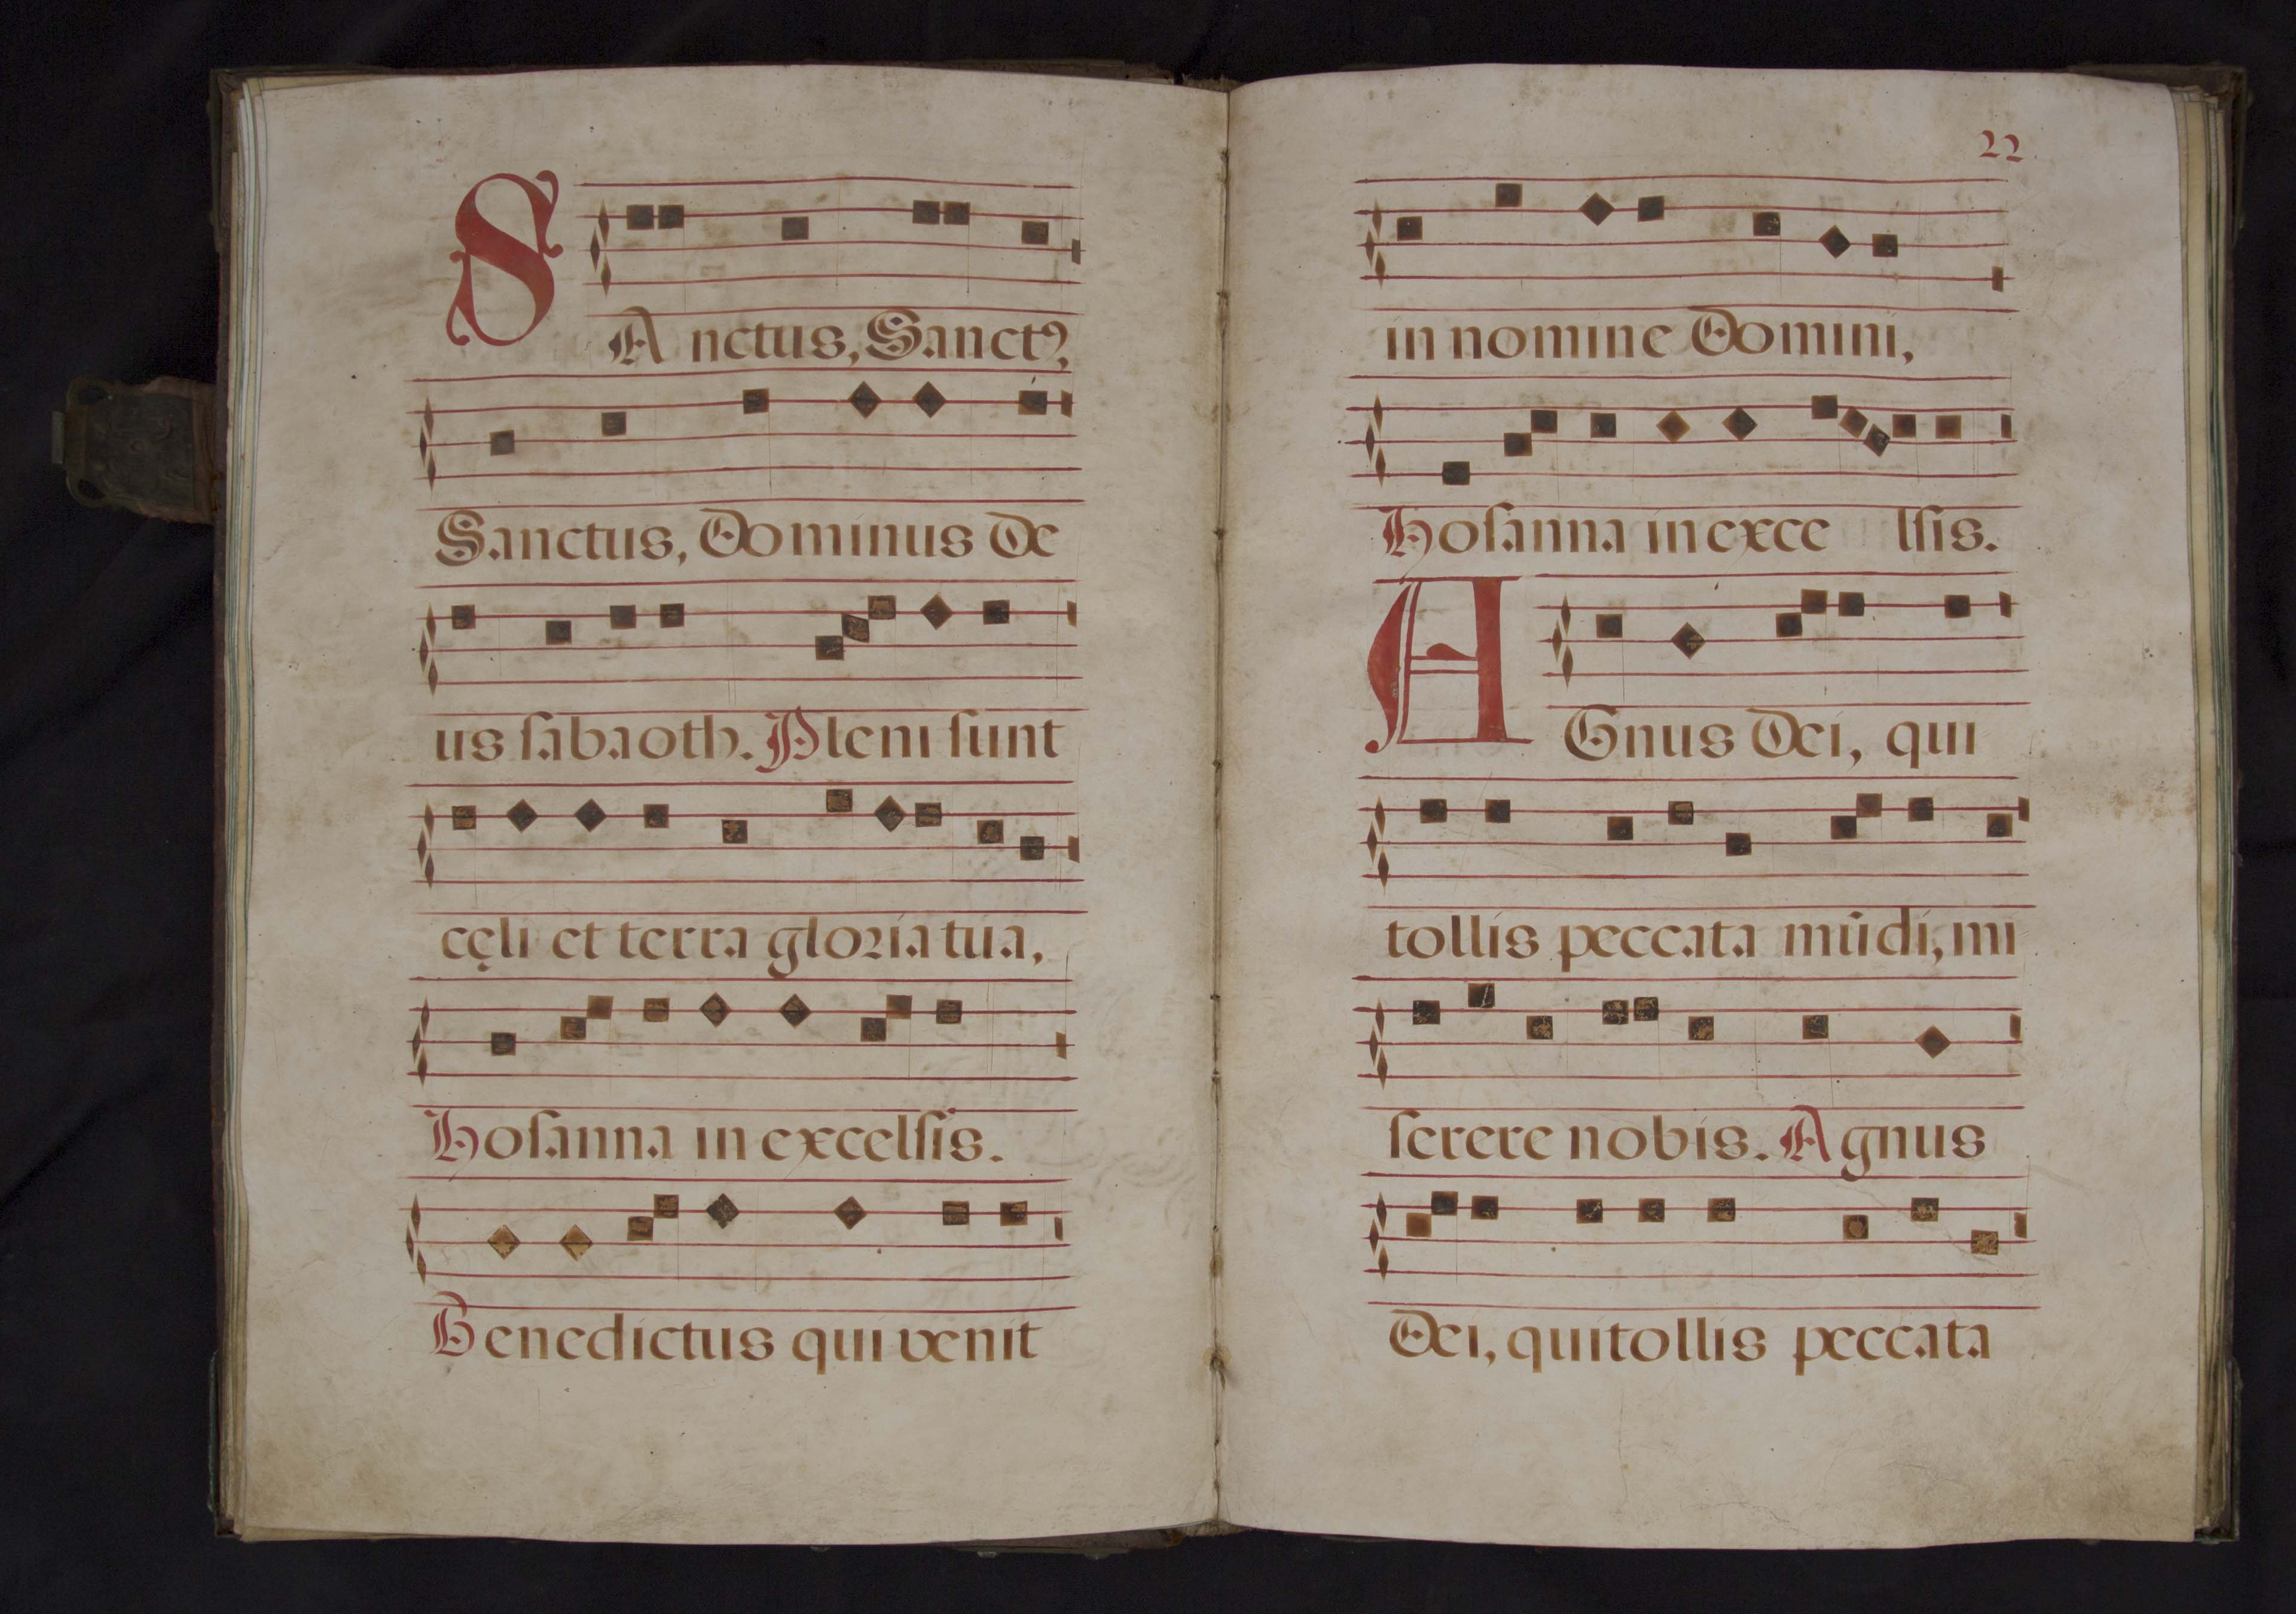 SA nctus, Sanctꝰ,
Sanctus, Dominus De
us ſabaoth. Pleni ſunt
cęli et terra gloria tua,
Hoſanna in excelſis.
Benedictus qui venit
22
in nomine Domini,
Hoſanna in exce lſis.
AGnus Dei, qui
tollis peccata mūdi, mi
ſerere nobis. Agnus
Dei, qui tollis peccata